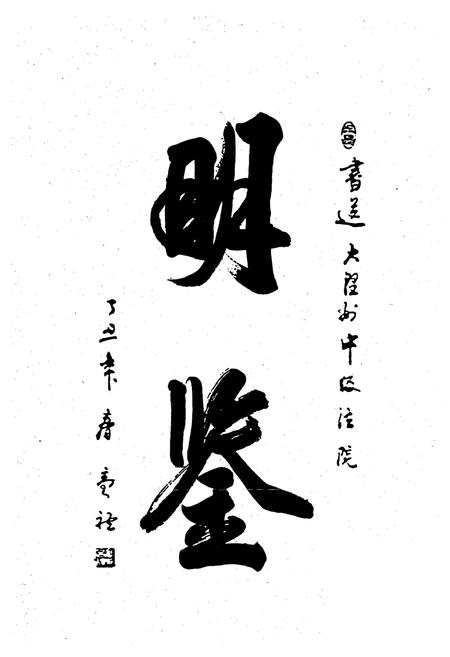 書送大理州中级法院
明鉴
丁丑年春